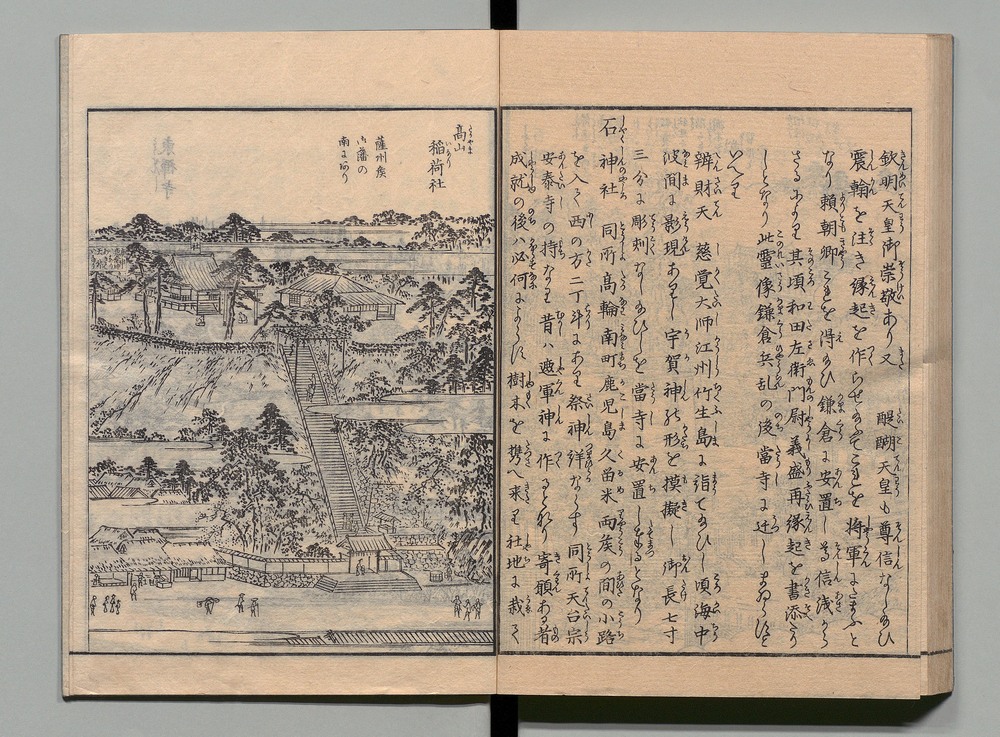 欽明天皇御崇敬あり又　醍醐天皇も尊信なし給ひ
震翰を注き縁起を作らせ給ひてこれを将軍にたまふと
なり頼朝卿これを得給ひ鎌倉に安置し尊信浅から
さるにより其頃和田左衛門尉義盛再縁起を書添たり
しとなり此霊像鎌倉兵乱の後當寺に迁しまゐらすと
いへり
辨財天　慈覚大師江州竹生島に詣て給ひし頃海中
波間に影現ありし宇賀神の形を摸擬し御長七寸
三分に彫刻なし給ひしを當寺に安置しまゐるとなり
石神社　同所高輪南町鹿児島久留米両侯の間の小路
を入て西の方二丁斗にあり祭神詳ならす同所天台宗
安泰寺の持なり昔ハ遮軍神に作るといへり寄願ある者
成就の後ハ必何によらす樹木を携へ来り社地に栽て
高山
稲荷社
薩州侯
御藩の
南にあり